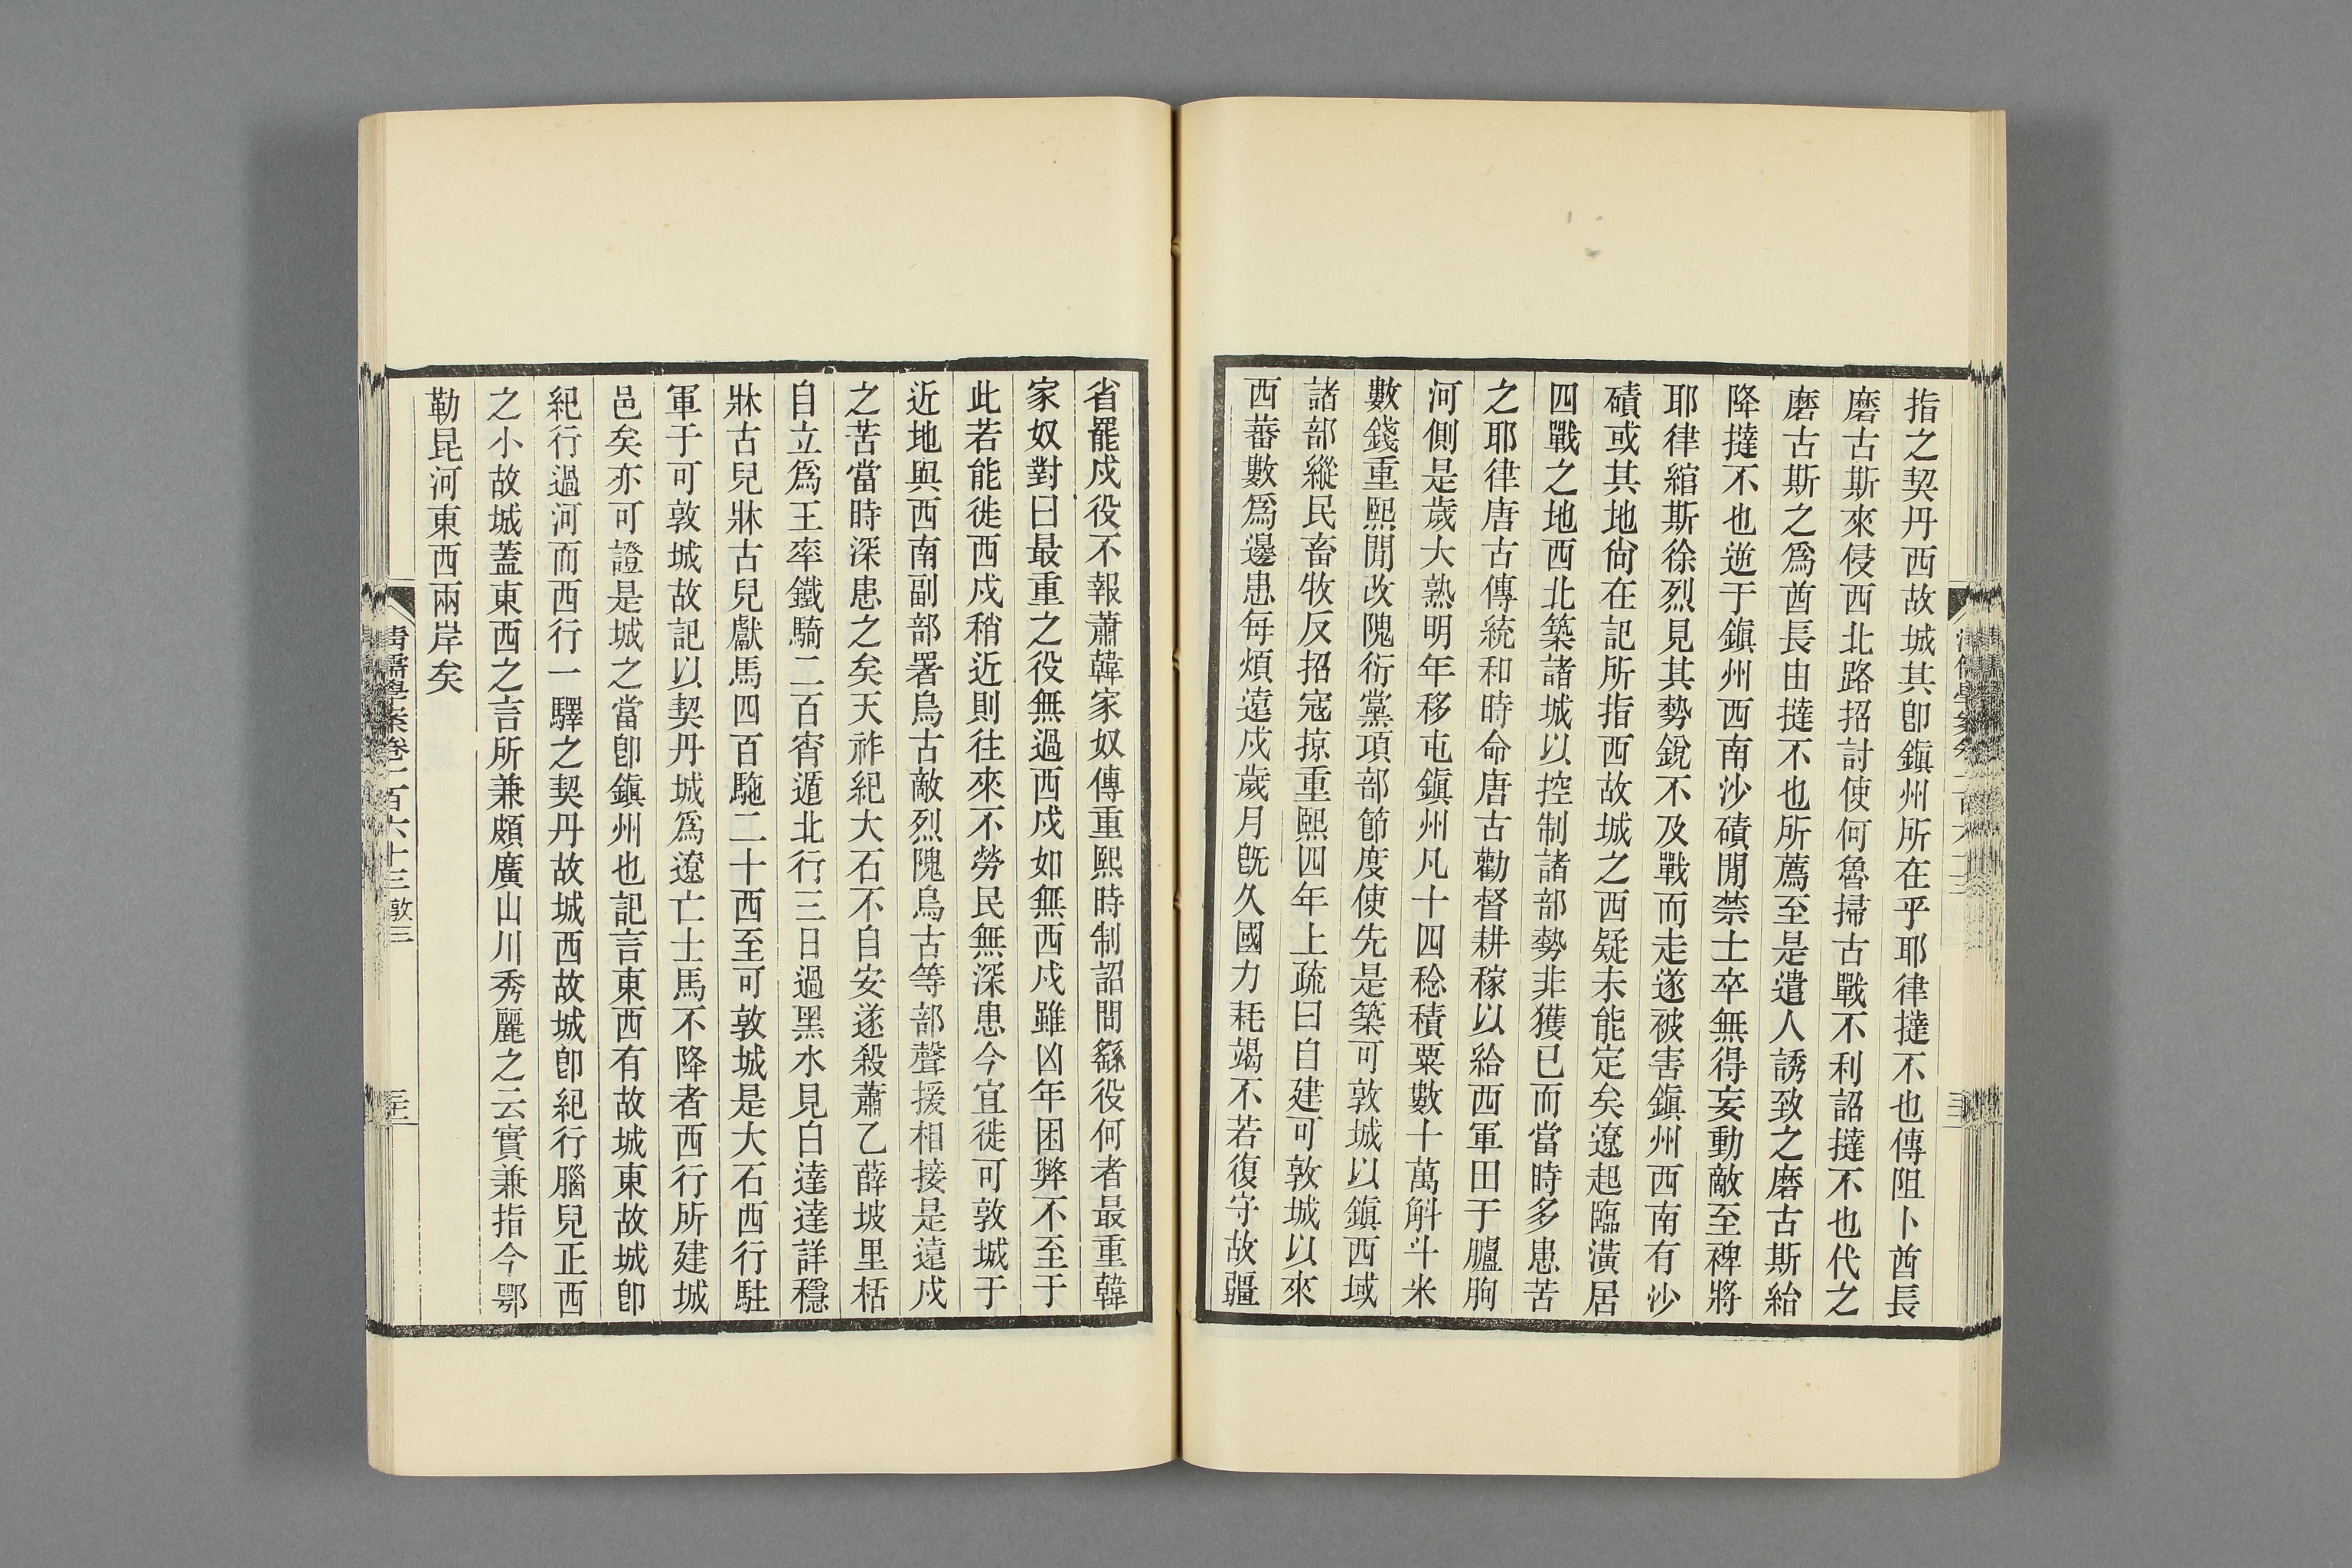 指之契丹西故城其卽鎭州所在乎耶律撻不也傳阻卜酋長
磨古斯來侵西北路招討使何魯掃古戰不利詔撻不也代之
磨古斯之爲酋長由撻不也所薦至是遣人誘致之磨古斯紿
降撻不也逆于鎭州西南沙磧閒禁士卒無得妄動敵至裨將
耶律綰斯徐烈見其勢銳不及戰而走遂被害鎭州西南有沙
磧或其地尙在記所指西故城之西疑未能定矣遼起臨潢居
四戰之地西北築諸城以控制諸部勢非獲已而當時多患苦
之耶律唐古傳統和時命唐古勸督耕稼以給西軍田于臚朐
河側是歲大熟明年移屯鎭州凡十四稔積粟數十萬斛斗米
數錢重熙閒改隗衍黨項部節度使先是築可敦城以鎭西域
諸部縱民畜牧反招寇掠重熙四年上疏曰自建可敦城以來
西蕃數爲邊患每煩遠戍歲月旣久國力耗竭不若復守故疆
省罷戍役不報蕭韓家奴傳重熙時制詔問繇役何者最重韓
家奴對曰最重之役無過西戍如無西戍雖凶年困弊不至于
此若能徙西戍稍近則往來不勞民無深患今宜徙可敦城于
近地與西南副部署烏古敵烈隗烏古等部聲援相接是遠戍
之苦當時深患之矣天祚紀大石不自安遂殺蕭乙薛坡里括
自立爲王率鐵騎二百宵遁北行三日過黑水見白達達詳穩
牀古兒牀古兒獻馬四百駞二十西至可敦城是大石西行駐
軍于可敦城故記以契丹城爲遼亡士馬不降者西行所建城
邑矣亦可證是城之當卽鎭州也記言東西有故城東故城卽
紀行過河而西行一驛之契丹故城西故城卽紀行腦兒正西
之小故城蓋東西之言所兼頗廣山川秀麗之云實兼指今鄂
勒昆河東西兩岸矣
淸儒學案卷一百六十三 敦三